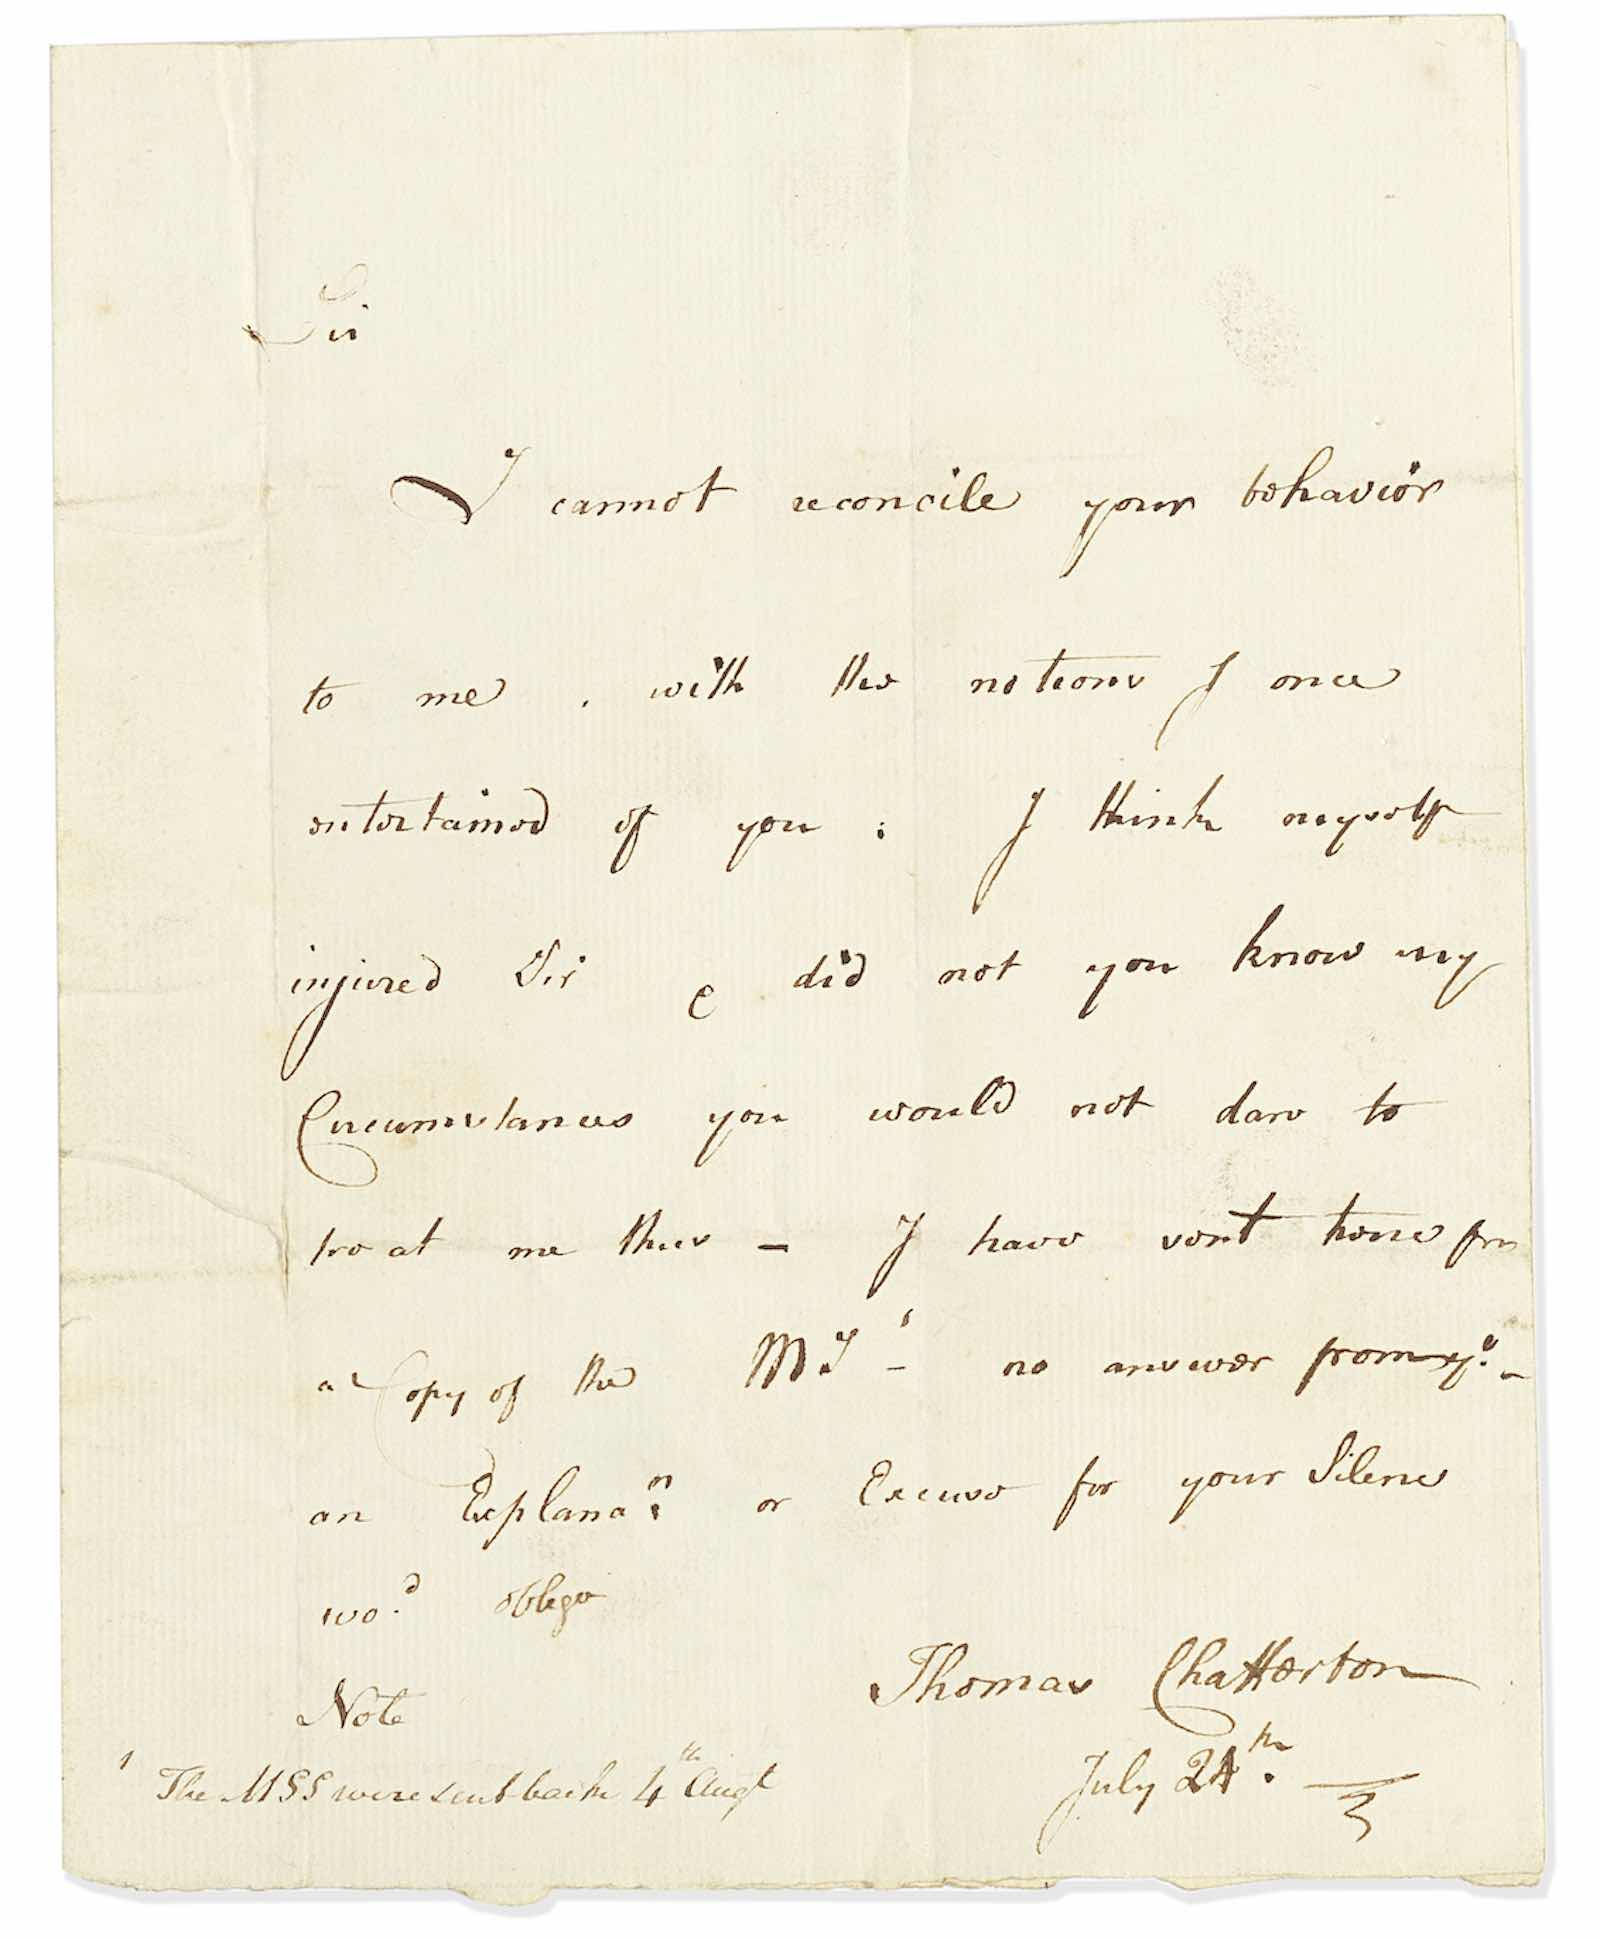 Sir
I cannot reconcile your behavior
to me , with the notions I once
entertained of you : I think myself
injured Sir & did not you know my
Circumstances you would not dare to
treat me thus — I have sent twice for
a Copy of the MS ¹ — no answer from yᵘ. —
an Explanaⁿ. or Excuse for your Silence
woᵈ. oblige
Thomas Chatterton
July 24ᵗʰ.
Note
¹ The MSS were sent back 4ᵗʰ Augᵗ